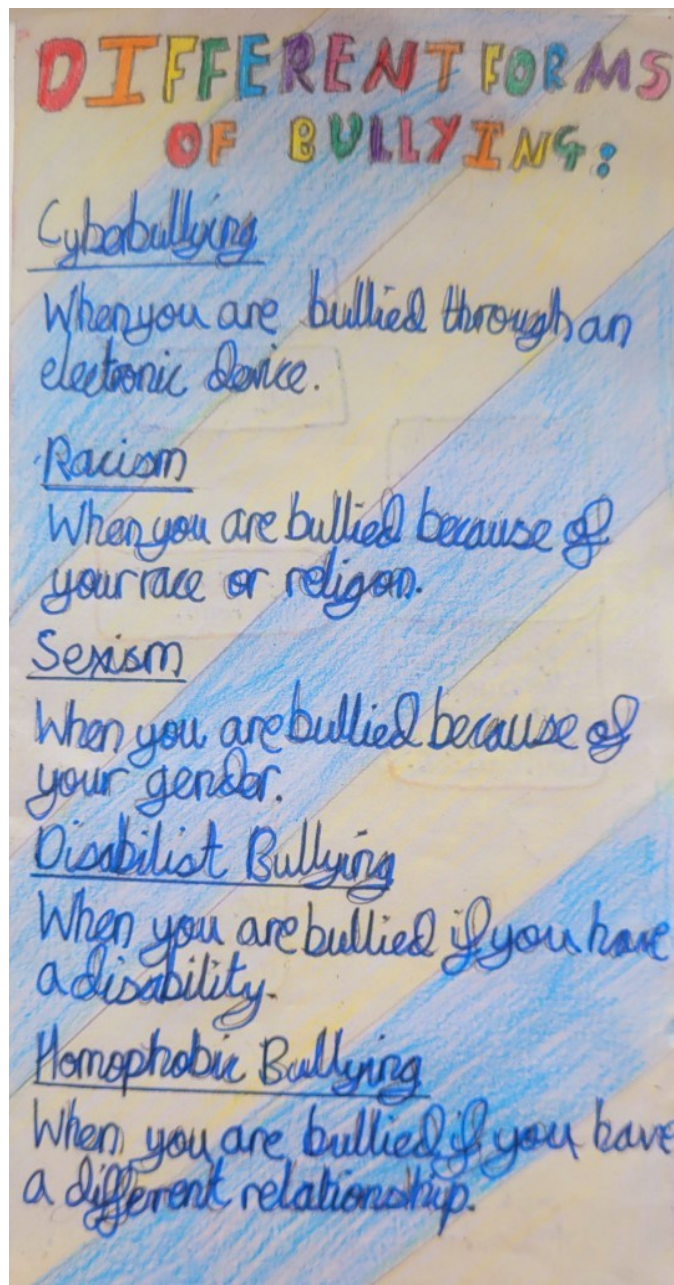 DIFFERENT FORMS
OF BULLYING:
Cyberbullying
When you are bullied through an
electronic device.
Racism
When you are bullied because of
your race or religon.
Sexism
When you are bullied because of
your gender.
Disabilist Bullying
When you are bullied if you have
a disability.
Homophobic Bullying
When you are bullied if you have
a different relationship.